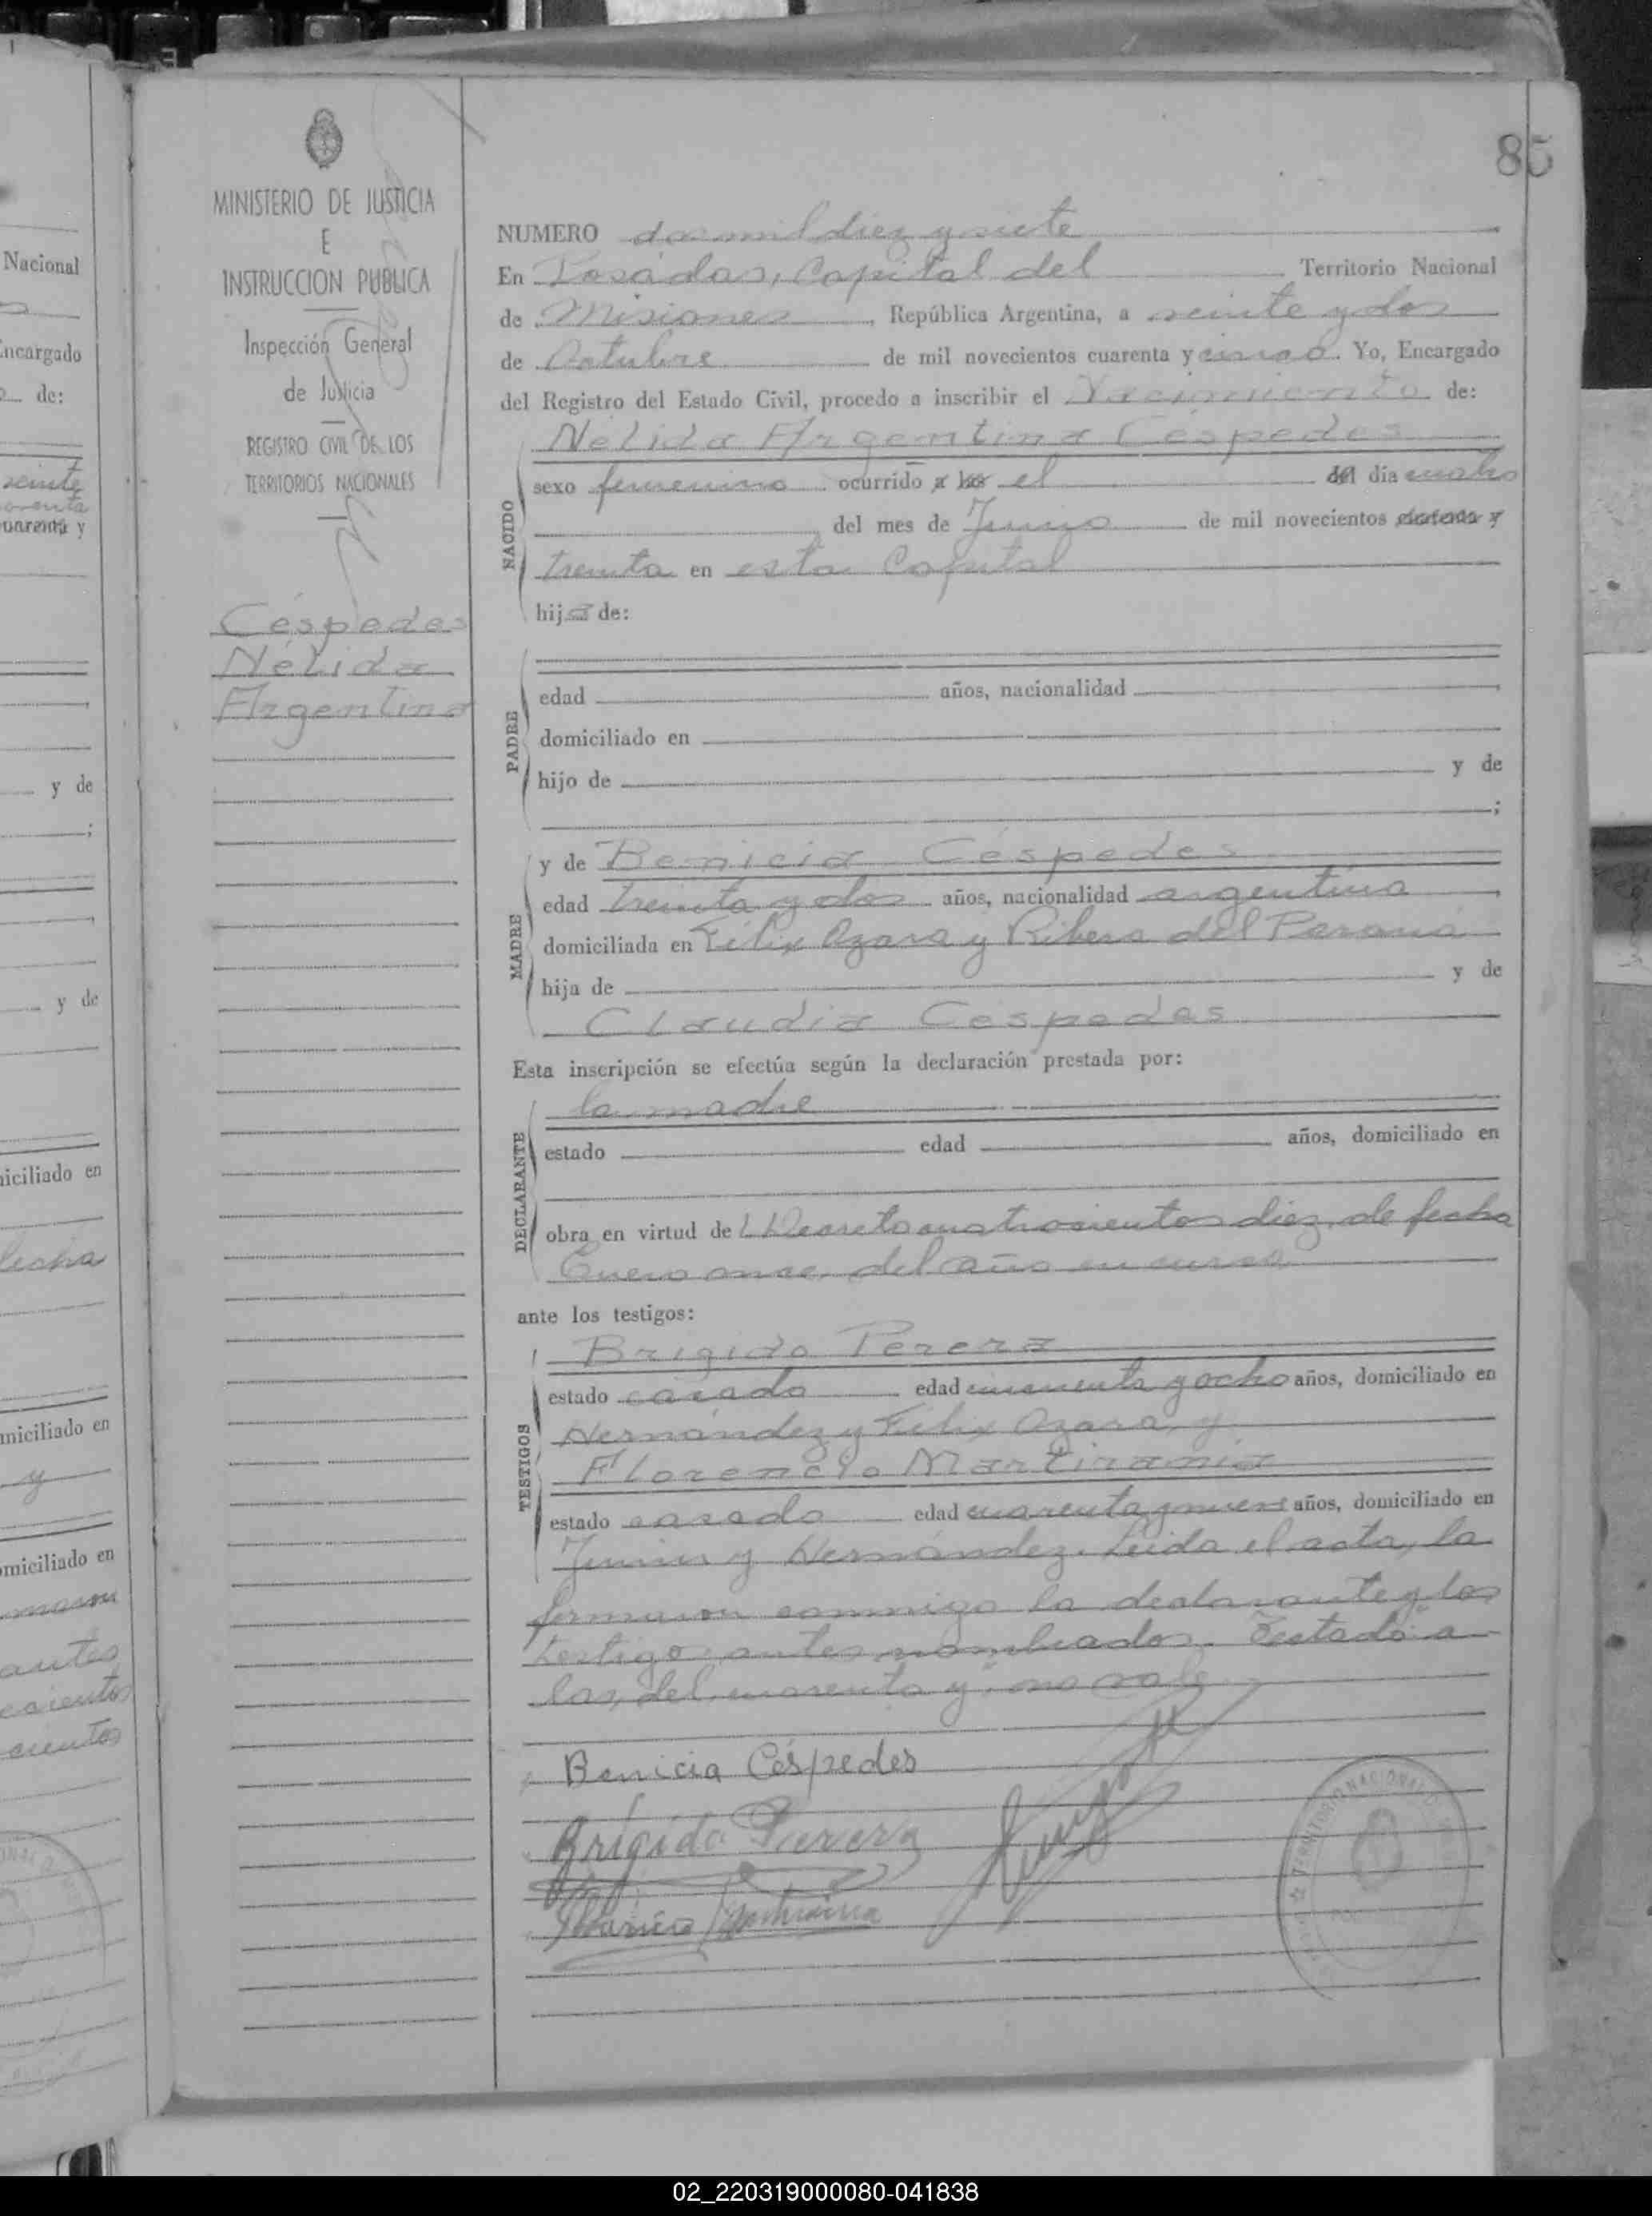 85
MINISTERIO DE JUSTICIA
E
INSTRUCCION PUBLICA
Inspección General
de Justicia
REGISTRO CIVIL DE LOS
TERRITORIOS NACIONALES
Céspedes
Nélida
Argentina
NUMERO dos mil diez y siete
En Posadas, Capital del Territorio Nacional
de Misiones, República Argentina, a veinte y dos
de Octubre de mil novecientos cuarenta y cinco. Yo, Encargado
del Registro del Estado Civil, procedo a inscribir el Nacimiento de:
Nélida Argentina Céspedes
NACIDO
sexo femenino ocurrido a las el del día cuatro
del mes de Junio de mil novecientos cuarenta y
treinta en esta Capital
hija de:
PADRE
edad años, nacionalidad
domiciliado en
hijo de y de
;
MADRE
y de Benicia Céspedes
edad treinta y dos años, nacionalidad argentina
domiciliada en Félix Azara y Ribera del Paraná
hija de y de
Claudia Cespedes
Esta inscripción se efectúa según la declaración prestada por:
DECLARANTE
la madre
estado edad años, domiciliado en
obra en virtud de Decreto cuatrocientos diez, de fecha
Enero once, del año en curso
ante los testigos:
TESTIGOS
Brígido Perera
estado casado edad cincuenta y ocho años, domiciliado en
Hernández y Félix Azara, y
Florencio Martiramia
estado casado edad cuarenta y nueve años, domiciliado en
Junin y Hernández. Leida el acta, la
firmaron conmigo la declarante y los
testigos antes nombrados. Testado: a
las, del, cuarenta y: no vale
Benicia Céspedes
Brígido Perera
TERRITORIO NACIONAL
Nacional
Encargado
de:
veinte
cuarenta y
y de
;
y de
miciliado en
fecha
miciliado en
y
omiciliado en
antes
cientos
02_220319000080-041838